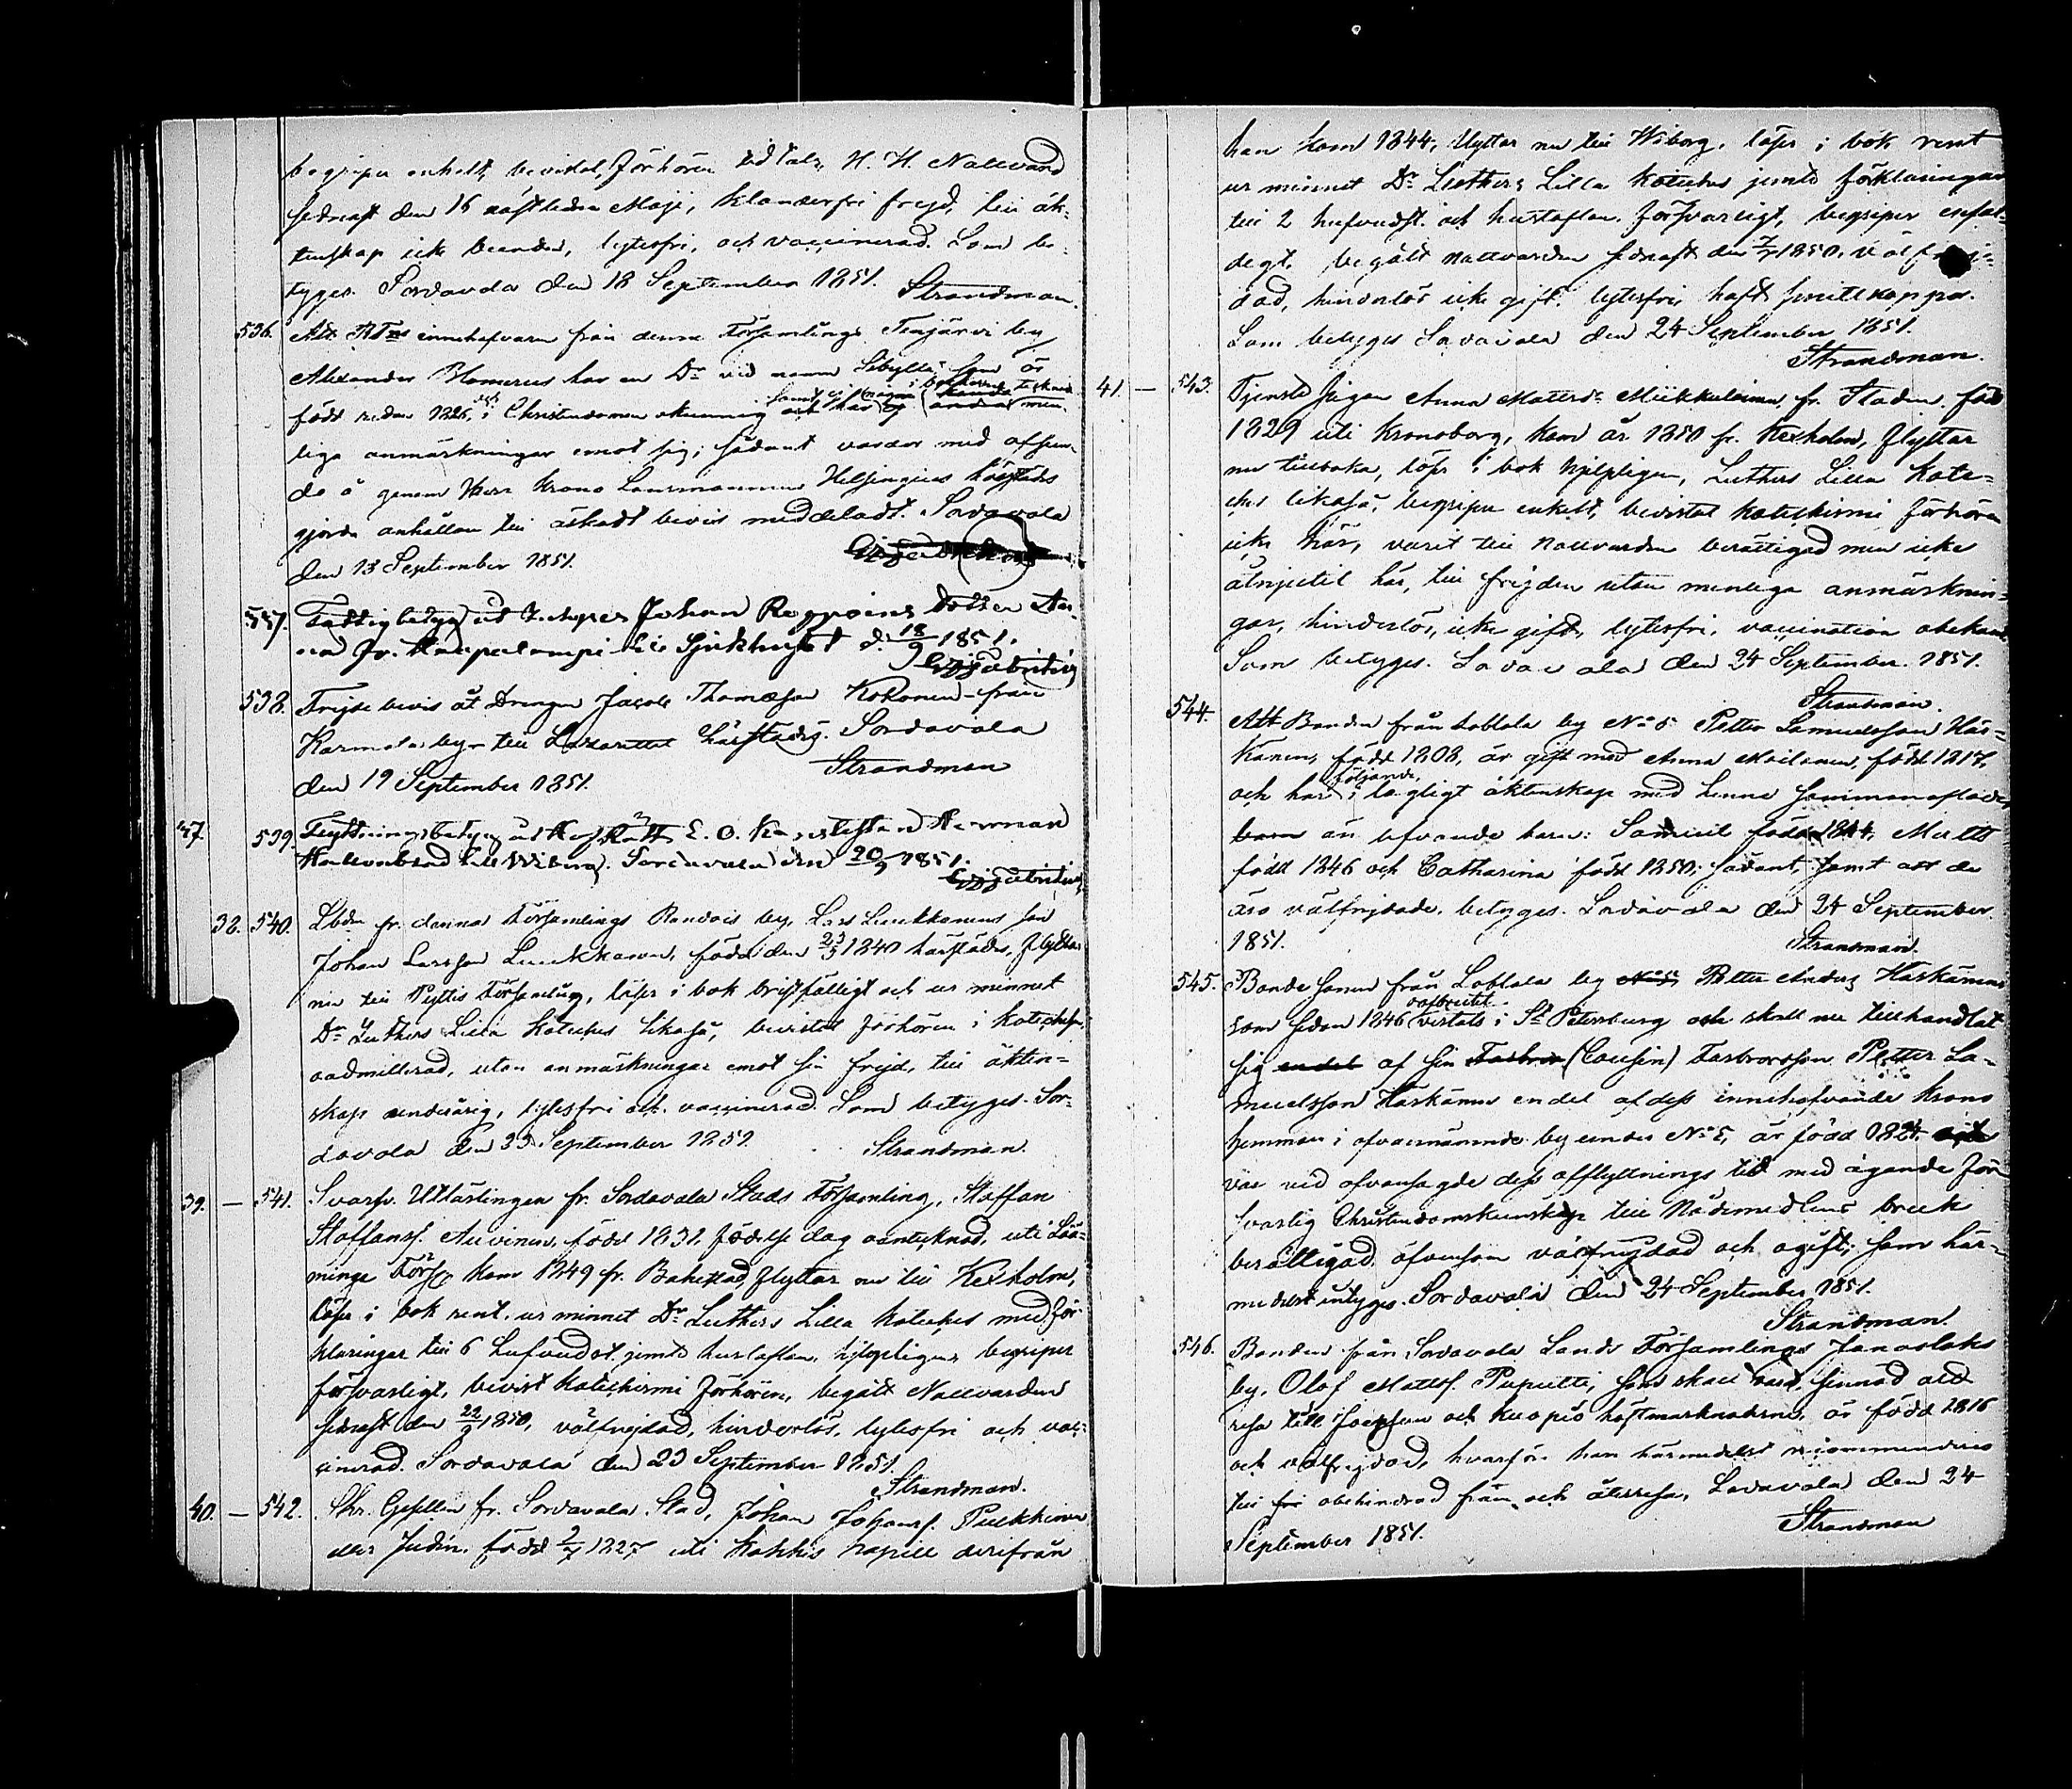 begriper enkelt, bevistat Förhören vid Tals, H. H. Nattvard
sednast den 16 nästledne Maji, klanderfri frejd, till äk-
tenskap icke bunden, lytesfri, och vaccinerad. Som be-
tygas. Sordavala den 18 September 1851. Strandman.
536. Att innehafvaren från denna Församlings Tenjärvi by
Alexander Homerus har en Dr vid namn Sibylla, som är
född redan 1826, och i Christendomen okunnig
liga anmärkningar emot sig; sådant varder med afseen-
de å genom Herr Krono Länsmannen Helsingius härstädes
gjorde anhållan till äskadt bevis meddeladt. Sordavala
den 18 September 1851.
537. Fattigbetyg åt Johan Repposens dotter An-
na fr. till Sjukhuset d. 18/9 1851.
538. Frejdebevis åt Drengen Jacob Thomasson Kokonen från
Karmala by till Lazarettet härstädes. Sordavala
den 19 September 1851. Strandman
47. 539. Flyttningsbetyg åt E. O. Herman
till Wiborg. Sordavala den 20/9 1851.
38. 540. Lbdn fr. denna Församlings Randois by, Lars Luukkonens son
Johan Larsson Luukkonen, född den 23/3 1840 härstädes, flyttar
nu till Pyttis Församling, läser i bok bristfälligt och ur minnet
Dr Luthers Lilla Katekes likaså, bevistat förhören i Katekesen,
oadmitterad, utan anmärkningar emot sin frejd, till äkten-
skap underårig, lytesfri och vaccinerad. Som betygas. Sor-
davala den 23 September 1851. Strandman.
39. — 541. Svarfv. Utlärlingen fr. Sordavala Stads Församling, Staffan
Staffanss. Auvinen, född 1831, födelse dag oantecknad, uti
minge Förs. kom 1849 fr. flyttar nu till Kexholm,
läser i bok rent, ur minnet Dr Luthers Lilla katekes med för-
klaringar till 6 Hufvudst. jemte hustaflan, hjelpligen, begriper
försvarligt, bevist Katekismi Förhören, begått Nattvarden
sednast den 22/9 1850, välfrejdad, hinderlös, lytesfri och vac-
cinerad. Sordavala den 23 September 1851.
Strandman.
40. — 542. Skr. Gesällen fr. Sordavala Stad, Johan Johanss. Pulkkinen
eller Judin, född 2/7 1827 uti Kakkis kapell derifrån
han kom 1844, flyttar nu till Wiborg, läser i bok rent
ur minnet Dr Luthers Lilla Katekes jemte förklaringar
till 2 hufvudst. och hustaflan försvarligt, begriper enfal-
digt, begått nattvarden sednast den 2/7 1850,
dad, hinderlös icke gift, lytesfri, haft smittkoppor.
Som betyges Sordavala den 24 September 1851.
Strandman.
41. — 543. Tjenste Pigan Anna Mattsdr Miikkulainen, fr. Staden, född
1829 uti Kronoborg, kom år 1850 fr. Kexholm, flyttar
nu tillbaka, läser i bok hjelpligen, Luthers Lilla Kate-
ches likaså, begriper enkelt, bevistat Katechismi Förhören
icke här, varit till Nattvarden berättigad men icke
åtnjutit här, till frejden utan menliga anmärknin-
gar, hinderlös, icke gift, lytesfri, vaccination obekant,
Som betyges. Sordavala den 24 September 1851.
Strandman.
544. Att Bonden från Loblala by No 5 Petter Samuelsson Här-
könen, född 1808, är gift med Anna född 1817,
och har följande i lagligt äktenskap med henne sammanaflade
barn än lefvande barn: Samuel född 1844, Matts
född 1846 och Catharina född 1850; sådant, samt att de
äro välfrejdade, betyges. Sordavala den 24 September
1851. Strandman.
545. Bonde Sonen från Loblala by No 5 Petter Anders Härkönen
som sedan 1846 oafbrutit vistats i St Petersburg och skall nu tillhandlat
sig en del af sin Farbror (Cousin) Farbrorsson Petter Sa-
muelsson Härkönen en del af dess innehafvande Krono
hemman i ofvannämnde by under No 5, är född 1824
var vid ofvansagde dess afflyttnings tid med ägande för-
svarlig Christendomskunskap till Nådemedlens bruk
berättigad, äfvensom välfrejdad och ogift; som här-
medelst intyges. Sordavala den 24 September 1851.
Strandman.
546. Bonden från Sordavala Lands Församlings Janaslaks
by, Olof Mattss. Puputti, som skall vara sinnad att
resa till Joensuu och Kuopio höstmarknaderna, är född 1816
och välfrejdad, hvarföre han härmedelst recommenderas
till fri obehindrad fram och återresa, Sordavala den 24
September 1851. Strandman